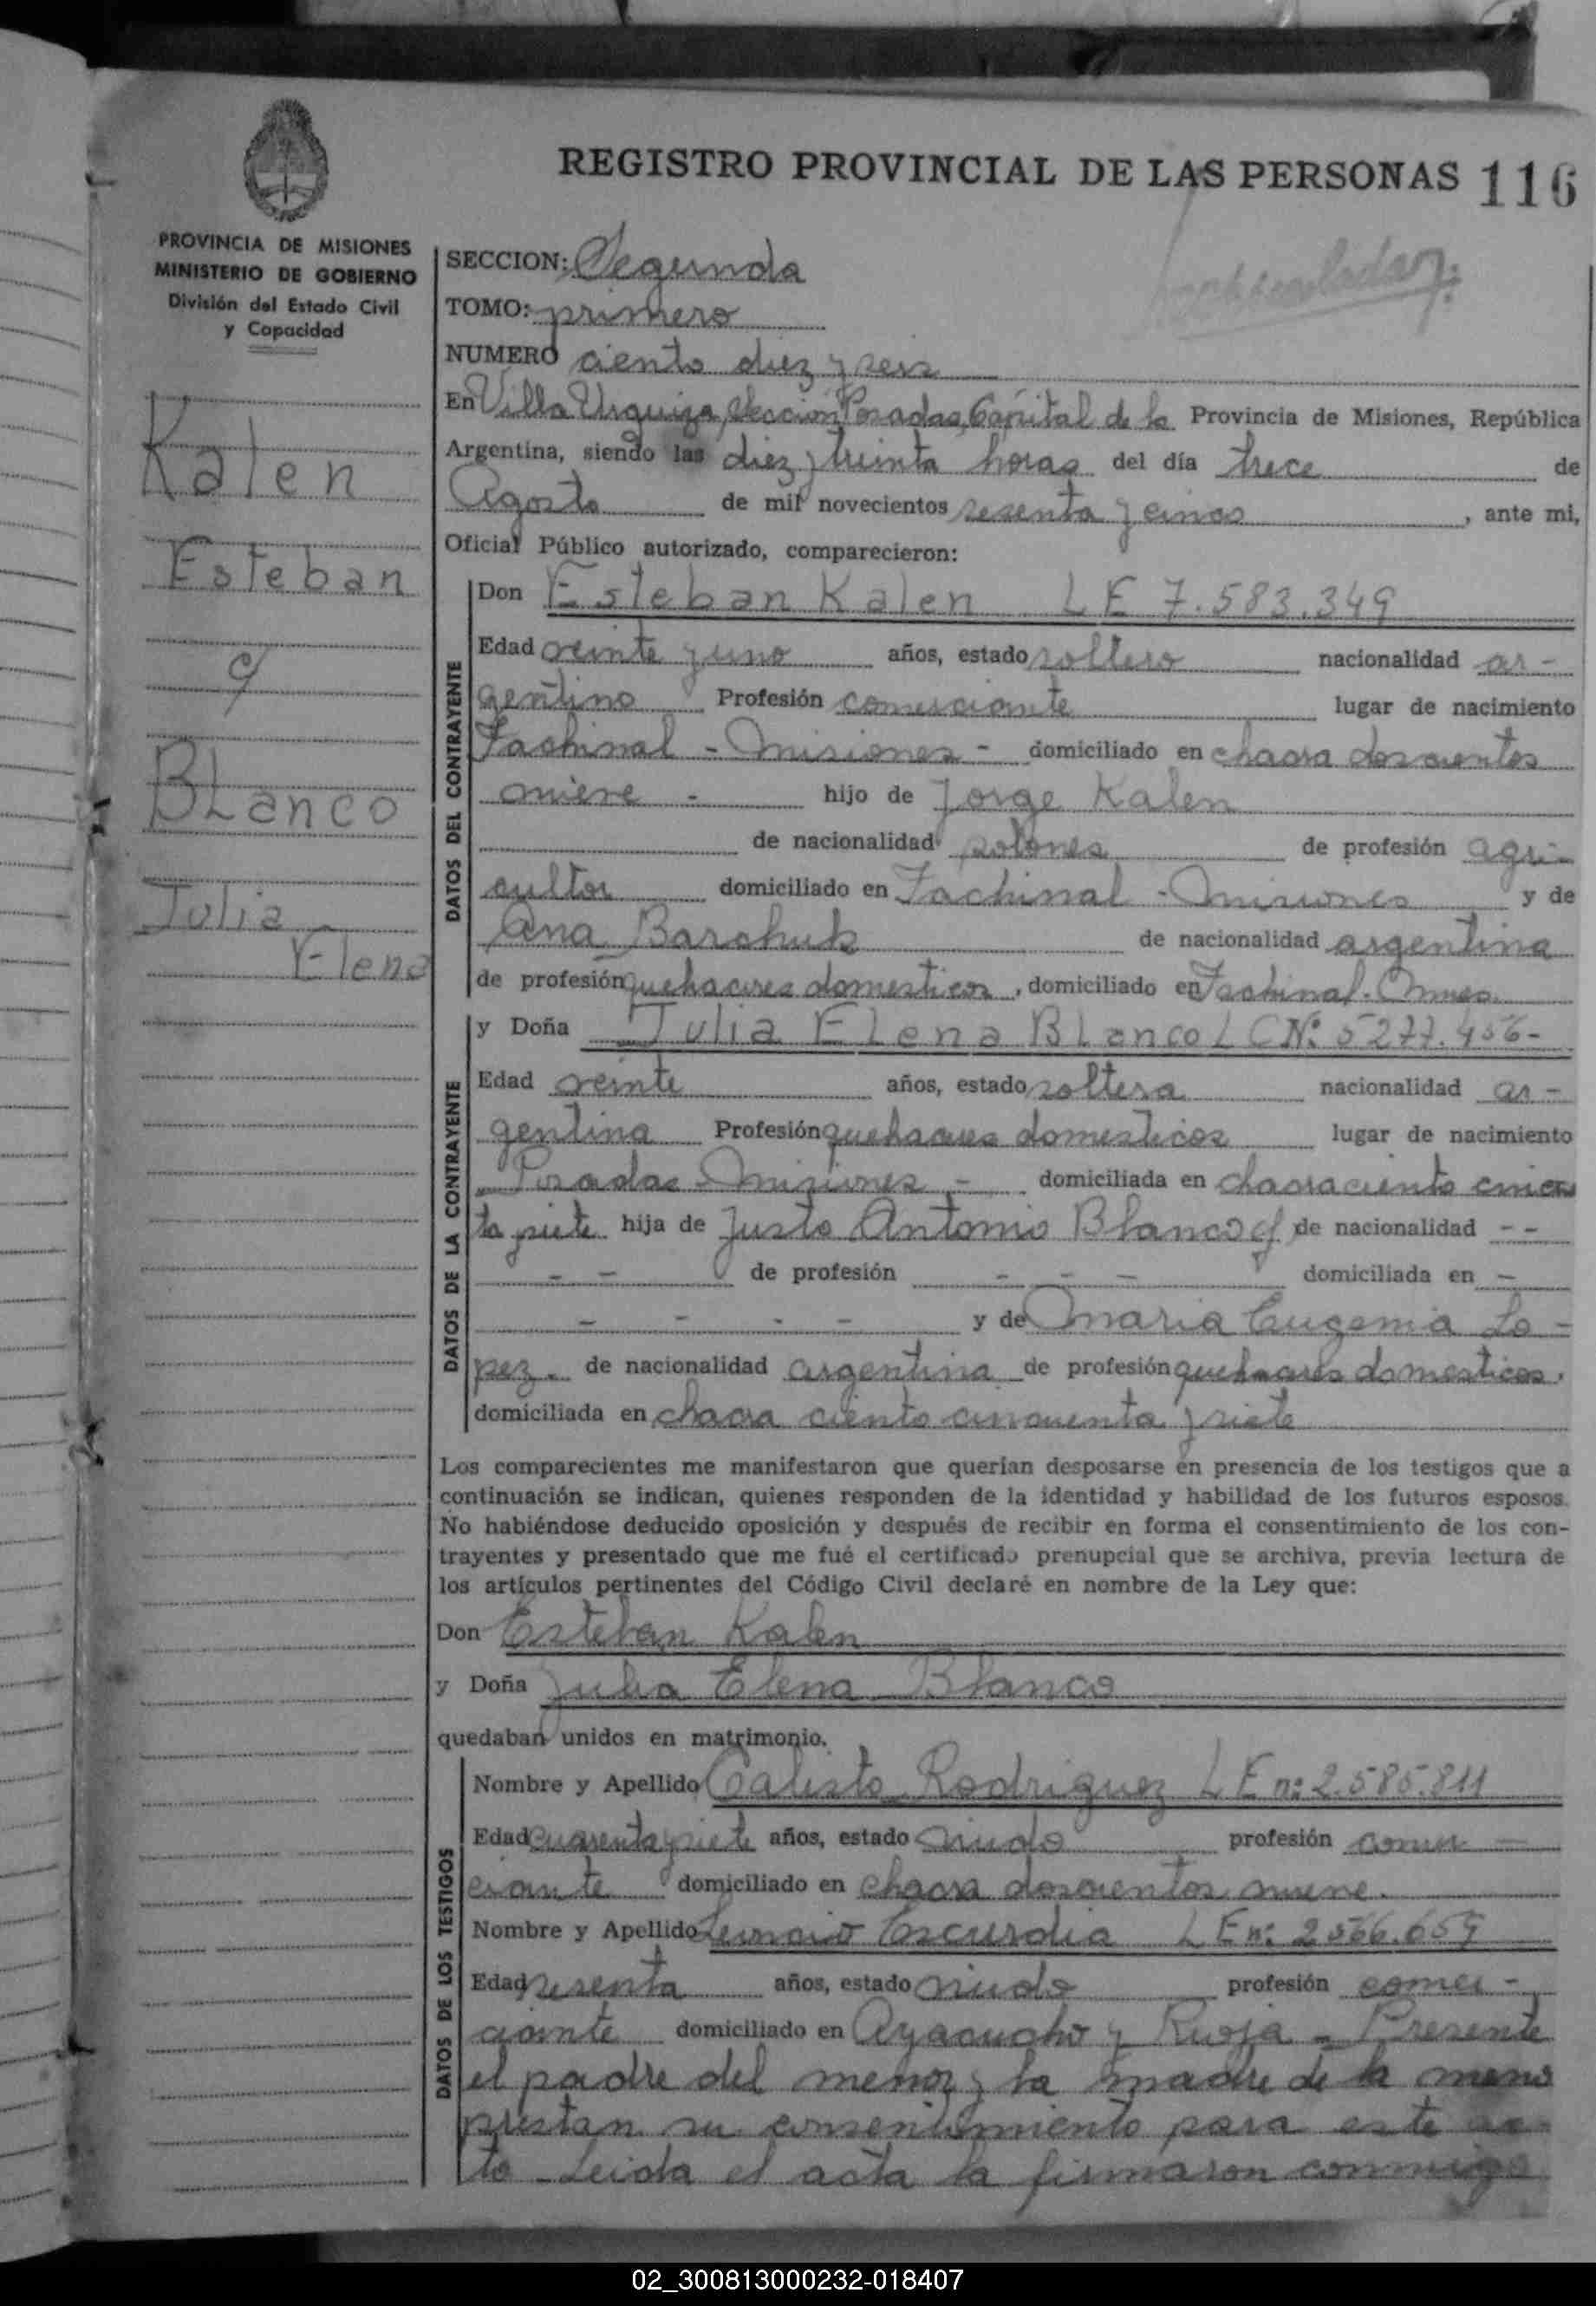 REGISTRO PROVINCIAL DE LAS PERSONAS 116
PROVINCIA DE MISIONES
MINISTERIO DE GOBIERNO
División del Estado Civil
y Capacidad
Kalen
Esteban
c/
BLanco
Julia
Elena
SECCION: Segunda
TOMO: primero
NUMERO ciento diez y seis
En Villa Urquiza, Seccion Posadas, Capital de la Provincia de Misiones, República
Argentina, siendo las diez y treinta horas del día trece de
Agosto de mil novecientos sesenta y cinco, ante mi,
Oficial Público autorizado, comparecieron:
DATOS DEL CONTRAYENTE
Don Esteban Kalen LE 7.583.349
Edad veinte y uno años, estado soltero nacionalidad ar-
gentino Profesión comerciante lugar de nacimiento
Fachinal - Misiones - domiciliado en chacra doscientos
nueve - hijo de Jorge Kalen
de nacionalidad polones de profesión agri-
cultor domiciliado en Fachinal - Misiones y de
Ana Barchuk de nacionalidad argentina
de profesión quehaceres domesticos, domiciliado en Fachinal.
DATOS DE LA CONTRAYENTE
y Doña Julia ELena BLanco LC Nº 5277.456-
Edad veinte años, estado soltera nacionalidad ar-
gentina Profesión quehaceres domesticos lugar de nacimiento
Posadas Misiones - domiciliada en chacra ciento
ta y siete hija de Justo Antonio Blanco de nacionalidad - -
- - de profesión - - - domiciliada en -
- - - - y de Maria Eugenia Lo-
pez. de nacionalidad argentina de profesión quehaceres domesticos.
domiciliada en chacra ciento cincuenta y siete
Los comparecientes me manifestaron que querían desposarse en presencia de los testigos que a
continuación se indican, quienes responden de la identidad y habilidad de los futuros esposos.
No habiéndose deducido oposición y después de recibir en forma el consentimiento de los con-
trayentes y presentado que me fué el certificado prenupcial que se archiva, previa lectura de
los artículos pertinentes del Código Civil declaré en nombre de la Ley que:
Don Esteban Kalen
y Doña Julia Elena Blanco
quedaban unidos en matrimonio.
DATOS DE LOS TESTIGOS
Nombre y Apellido Calisto Rodriguez LE nº 2.585.811
Edad cuarenta y siete años, estado viudo profesión comer-
ciante domiciliado en chacra doscientos nueve.
Nombre y Apellido Leoncio Escurdia LE nº 2566.659
Edad sesenta años, estado viudo profesión comer-
ciante domiciliado en Ayacucho y Rioja - Presente
el padre del menor y la madre de la meno
prestan su consentimiento para este ac-
to - Leida el acta la firmaron conmigo
02_300813000232-018407